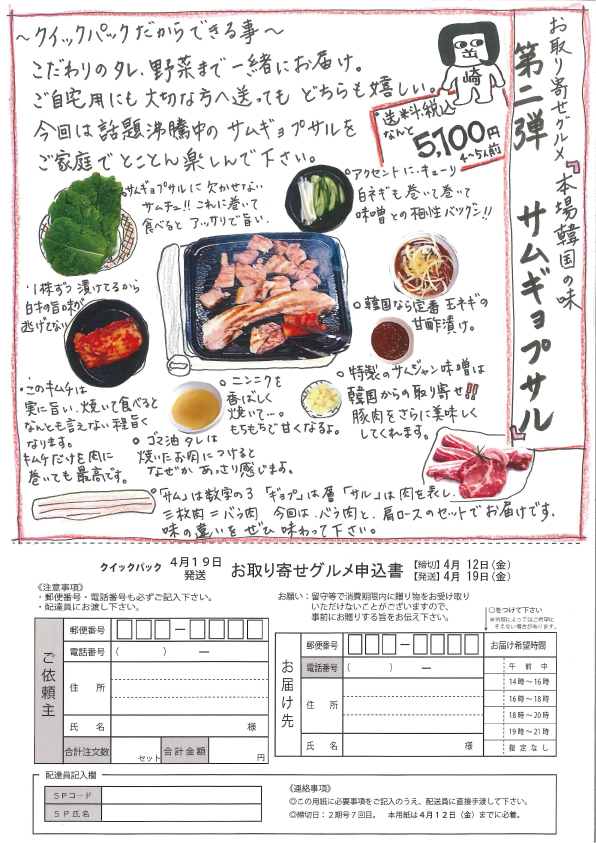 お取り寄せグルメ『本場韓国の味
第二弾 サムギョプサル』
〜クイックパックだからできる事〜
こだわりのタレ、野菜まで一緒にお届け。
ご自宅用にも大切な方へ送ってもどちらも嬉しい。
今回は話題沸騰中のサムギョプサルを
ご家庭でとことん楽しんで下さい。
崎
送料・税込
なんと
5,100円
4〜5人前
サムギョプサルに欠かせない
サムチュ!!これに巻いて
食べるとアッサリで旨い。
アクセントに・キューリ
白ネギも巻いて巻いて
味噌との相性バツグン!!
1株ずつ漬けてるから
白才の旨味が
逃げてない
韓国なら定番 玉ネギの
甘酢漬け。
・このキムチは
実に旨い、焼いて食べると
なんとも言えない程旨く
なります。
キムチだけを肉に
巻いても最高です。
ニンニクを
香ばしく
焼いて…。
もちもちで甘くなるよ。
特製のサムジャン味噌は
韓国からの取り寄せ!!
豚肉をさらに美味しく
してくれます。
ゴマ油タレは
焼いたお肉につけると
なぜかあっさり感じます。
「サム」は数字の3「ギョプ」は層「サル」は肉を表し、
三枚肉=バラ肉 今回は、バラ肉と、肩ロースのセットでお届けです。
味の違いをぜひ味わって下さい。
クイックパック 4月19日
発送
お取り寄せグルメ申込書
【締切】4月 12日(金)
【発送】4月 19日(金)
《注意事項》
・郵便番号・電話番号も必ずご記入下さい。
・配達員にお渡し下さい。
お願い:留守等で消費期限内に贈り物をお受け取り
いただけないことがございますので、
事前にお贈りする旨をお伝え下さい。
○をつけて下さい
※地域によってはご希望に
そえない場合があります。
ご依頼主
郵便番号 ー
電話番号 ( ) ー
住 所
氏 名 様
合計注文数 セット 合計金額 円
お届け先
郵便番号 ー
電話番号 ( ) ー
住 所
氏 名 様
お届け希望時間
午 前 中
14時〜16時
16時〜18時
18時〜20時
19時〜21時
指 定 な し
配達員記入欄
SPコード
SP氏名
《連絡事項》
◎この用紙に必要事項をご記入のうえ、配送員に直接手渡して下さい。
◎締切日:2期号7回目。 本用紙は4月12日(金)までに必着。